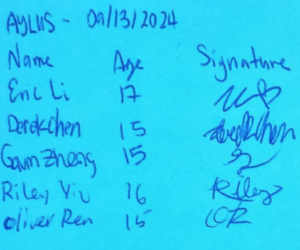 AYLUS - 09/13/2024
Name Age Signature
Eric Li 17
Derek chen 15 Derek Chen
Gavin Zheng 15
Riley Yiu 16 Riley
Oliver Ren 15 OR